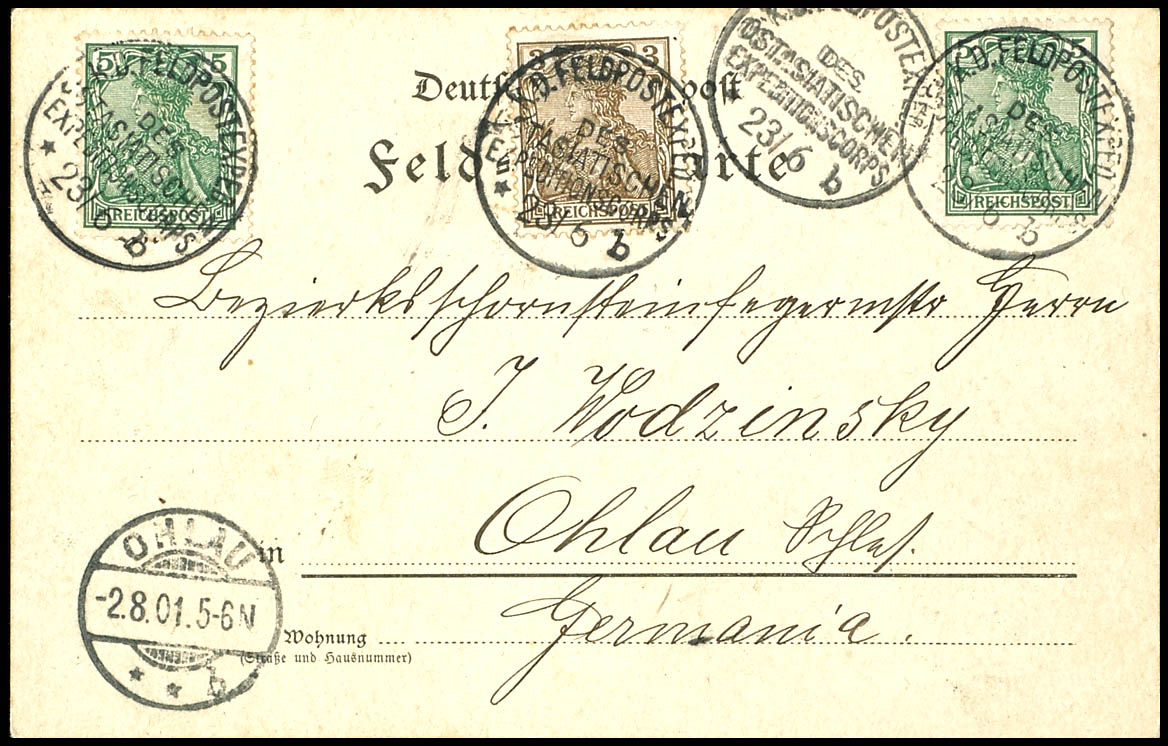 5 5
REICHSPOST
3 3
REICHSPOST
5 5
REICHSPOST
K.D.FELDPOSTEXPED.
DES
OSTASIATISCHEN
EXPEDITIONSCORPS
23/6 b
K.D.FELDPOSTEXPED.
DES
OSTASIATISCHEN
EXPEDITIONSCORPS
23/6 b
K.D.FELDPOSTEXPED.
DES
OSTASIATISCHEN
EXPEDITIONSCORPS
23/6 b
K.D.FELDPOSTEXPED.
DES
OSTASIATISCHEN
EXPEDITIONSCORPS
23/6 b
Deutsche post
Feldpostkarte
Bezierksschornsteinfegermstr Herrn
J. Wodzinsky
in Ohlau Schles.
Germania.
Wohnung
(Straße und Hausnummer)
OHLAU
-2.8.01.5-6N
* * b